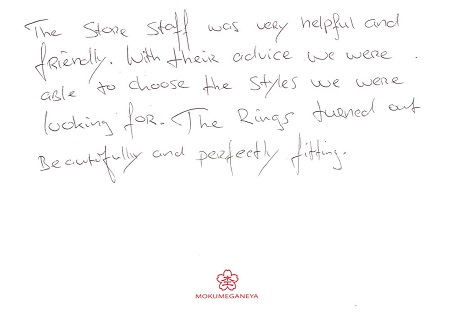 The Store Staff was very helpful and
friendly. With their advice we were
able to choose the styles we were
looking for. The Rings turned out
Beautifully and perfectly fitting.
MOKUMEGANEYA